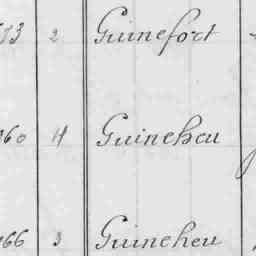 2 Guinefort
60 4 Guineheu
66 3 Guineheu